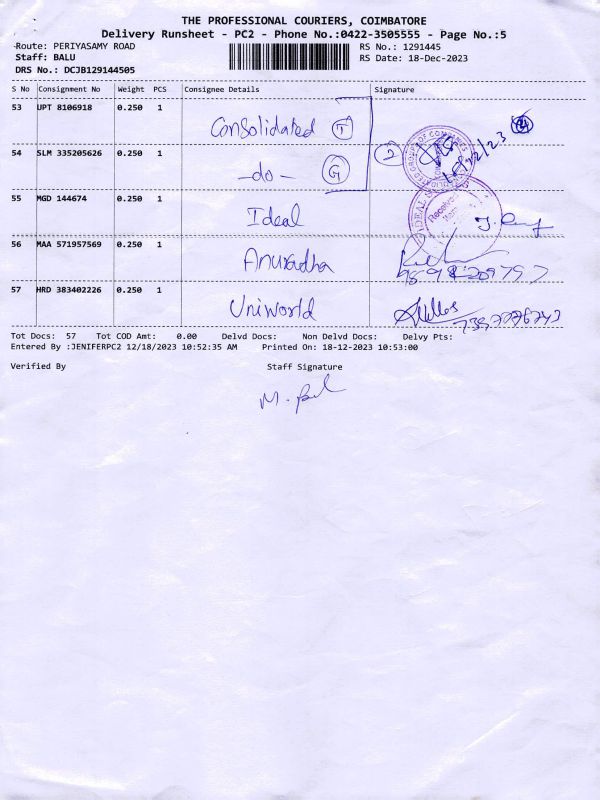 THE PROFESSIONAL COURIERS, COIMBATORE
Delivery Runsheet - PC2 - Phone No.:0422-3505555 - Page No.:5
Route: PERIYASAMY ROAD
RS No.: 1291445
Staff: BALU
RS Date: 18-Dec-2023
DRS No.: DCJB129144505
S No Consignment No Weight PCS Consignee Details Signature
53 UPT 8106918 0.250 1
Consolidated T
54 SLM 335205626 0.250 1
-do- G
2
55 MGD 144674 0.250 1
Ideal
56 MAA 571957569 0.250 1
Anuradha
57 HRD 383402226 0.250 1
Uniworld
Tot Docs: 57 Tot COD Amt: 0.00 Delvd Docs: Non Delvd Docs: Delvy Pts:
Entered By :JENIFERPC2 12/18/2023 10:52:35 AM Printed On: 18-12-2023 10:53:00
Verified By Staff Signature